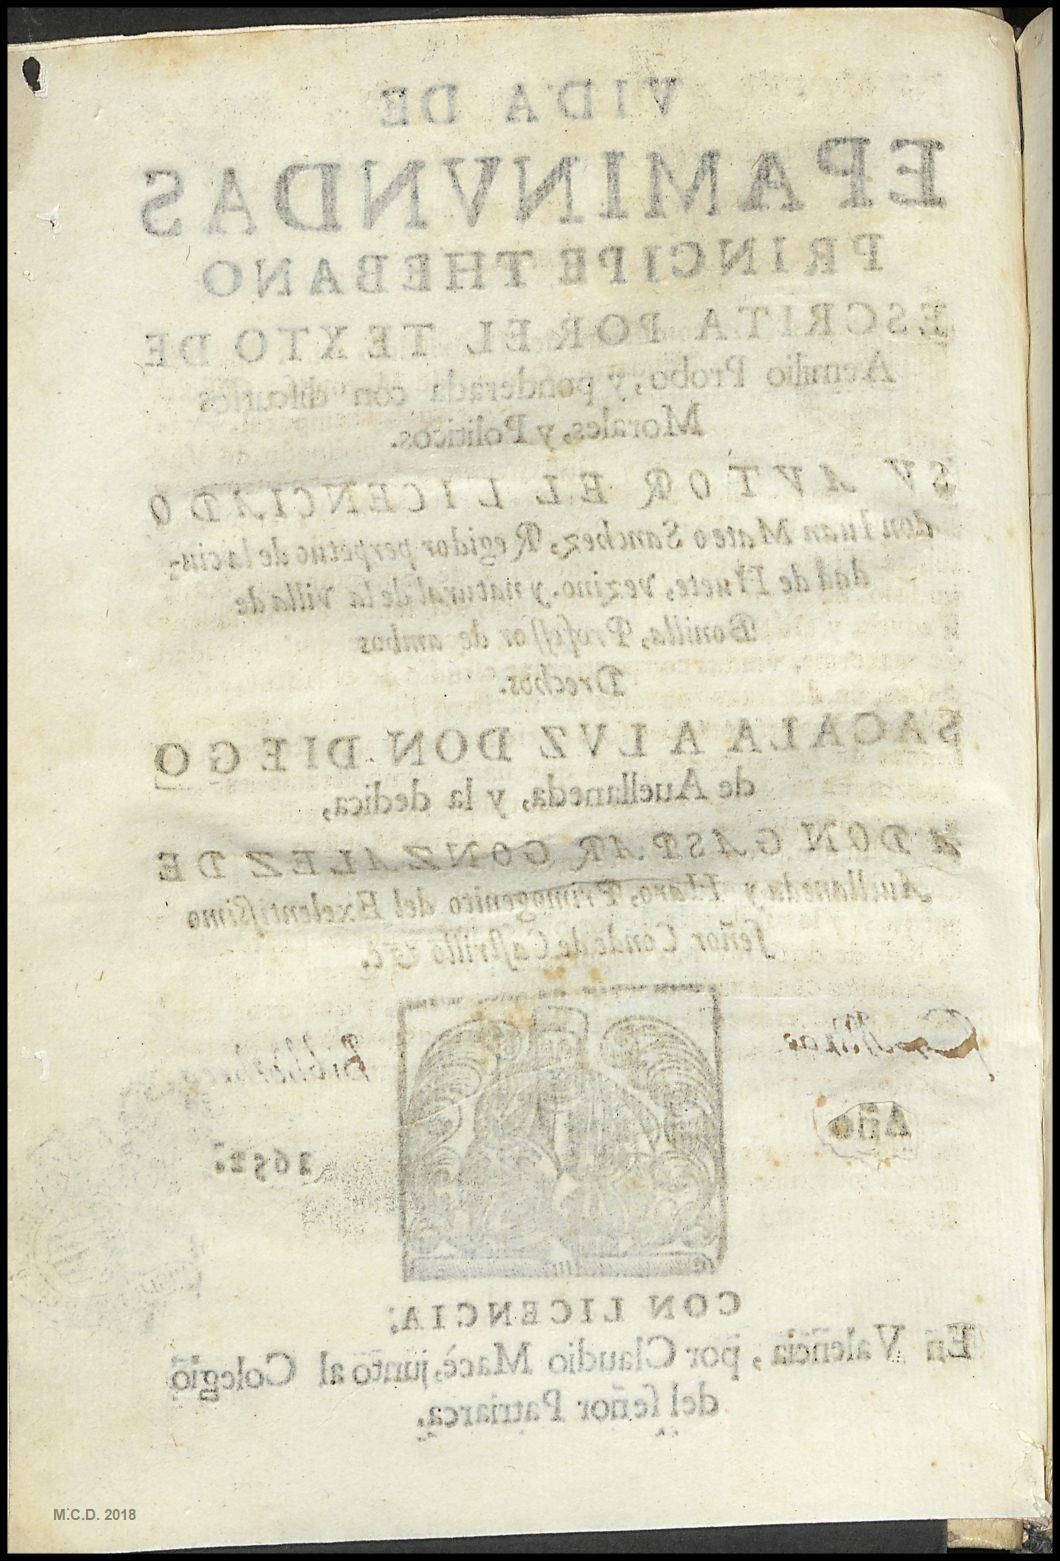 VIDA DE
EPAMINVNDAS
PRINCIPE THEBANO
ESCRITA POR EL TEXTO DE
Aemilio Probo, y ponderada con discursos
Morales, y Politicos.
SV AVTOR EL LICENCIADO
don Iuan Mateo Sanchez, Regidor perpetuo de la ciu-
dad de Huete, vezino, y natural de la villa de
Bonilla, Professor de ambos
Drechos.
SACALA A LVZ DON DIEGO
de Auellaneda, y la dedica,
A DON GASPAR GONZALEZ DE
Auellaneda y Haro, Primogenito del Exelentissimo
señor Conde de Castrillo &c.
Año
1652.
CON LICENCIA,
En Valencia, por Claudio Macè, junto al Colegio
del señor Patriarca,
M.C.D. 2018